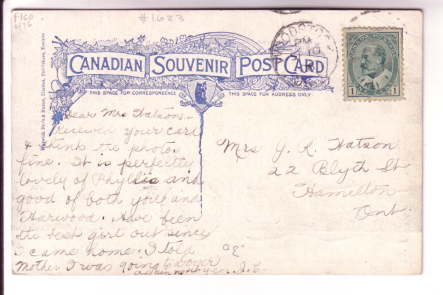 #1623
CANADIAN SOUVENIR POST CARD
THIS SPACE FOR CORRESPONDENCE THIS SPACE FOR ADDRESS ONLY
1 1
Dear Mrs Watson -
Received your card
& think the photos
fine. It is perfectly
lovely of Phyllis and
good of both you and
Harwood. Have been
the best girl out since
I came home. I told
Mother I was going
Mrs Y. R. Watson
22 Blyth St
Hamilton
Ont.